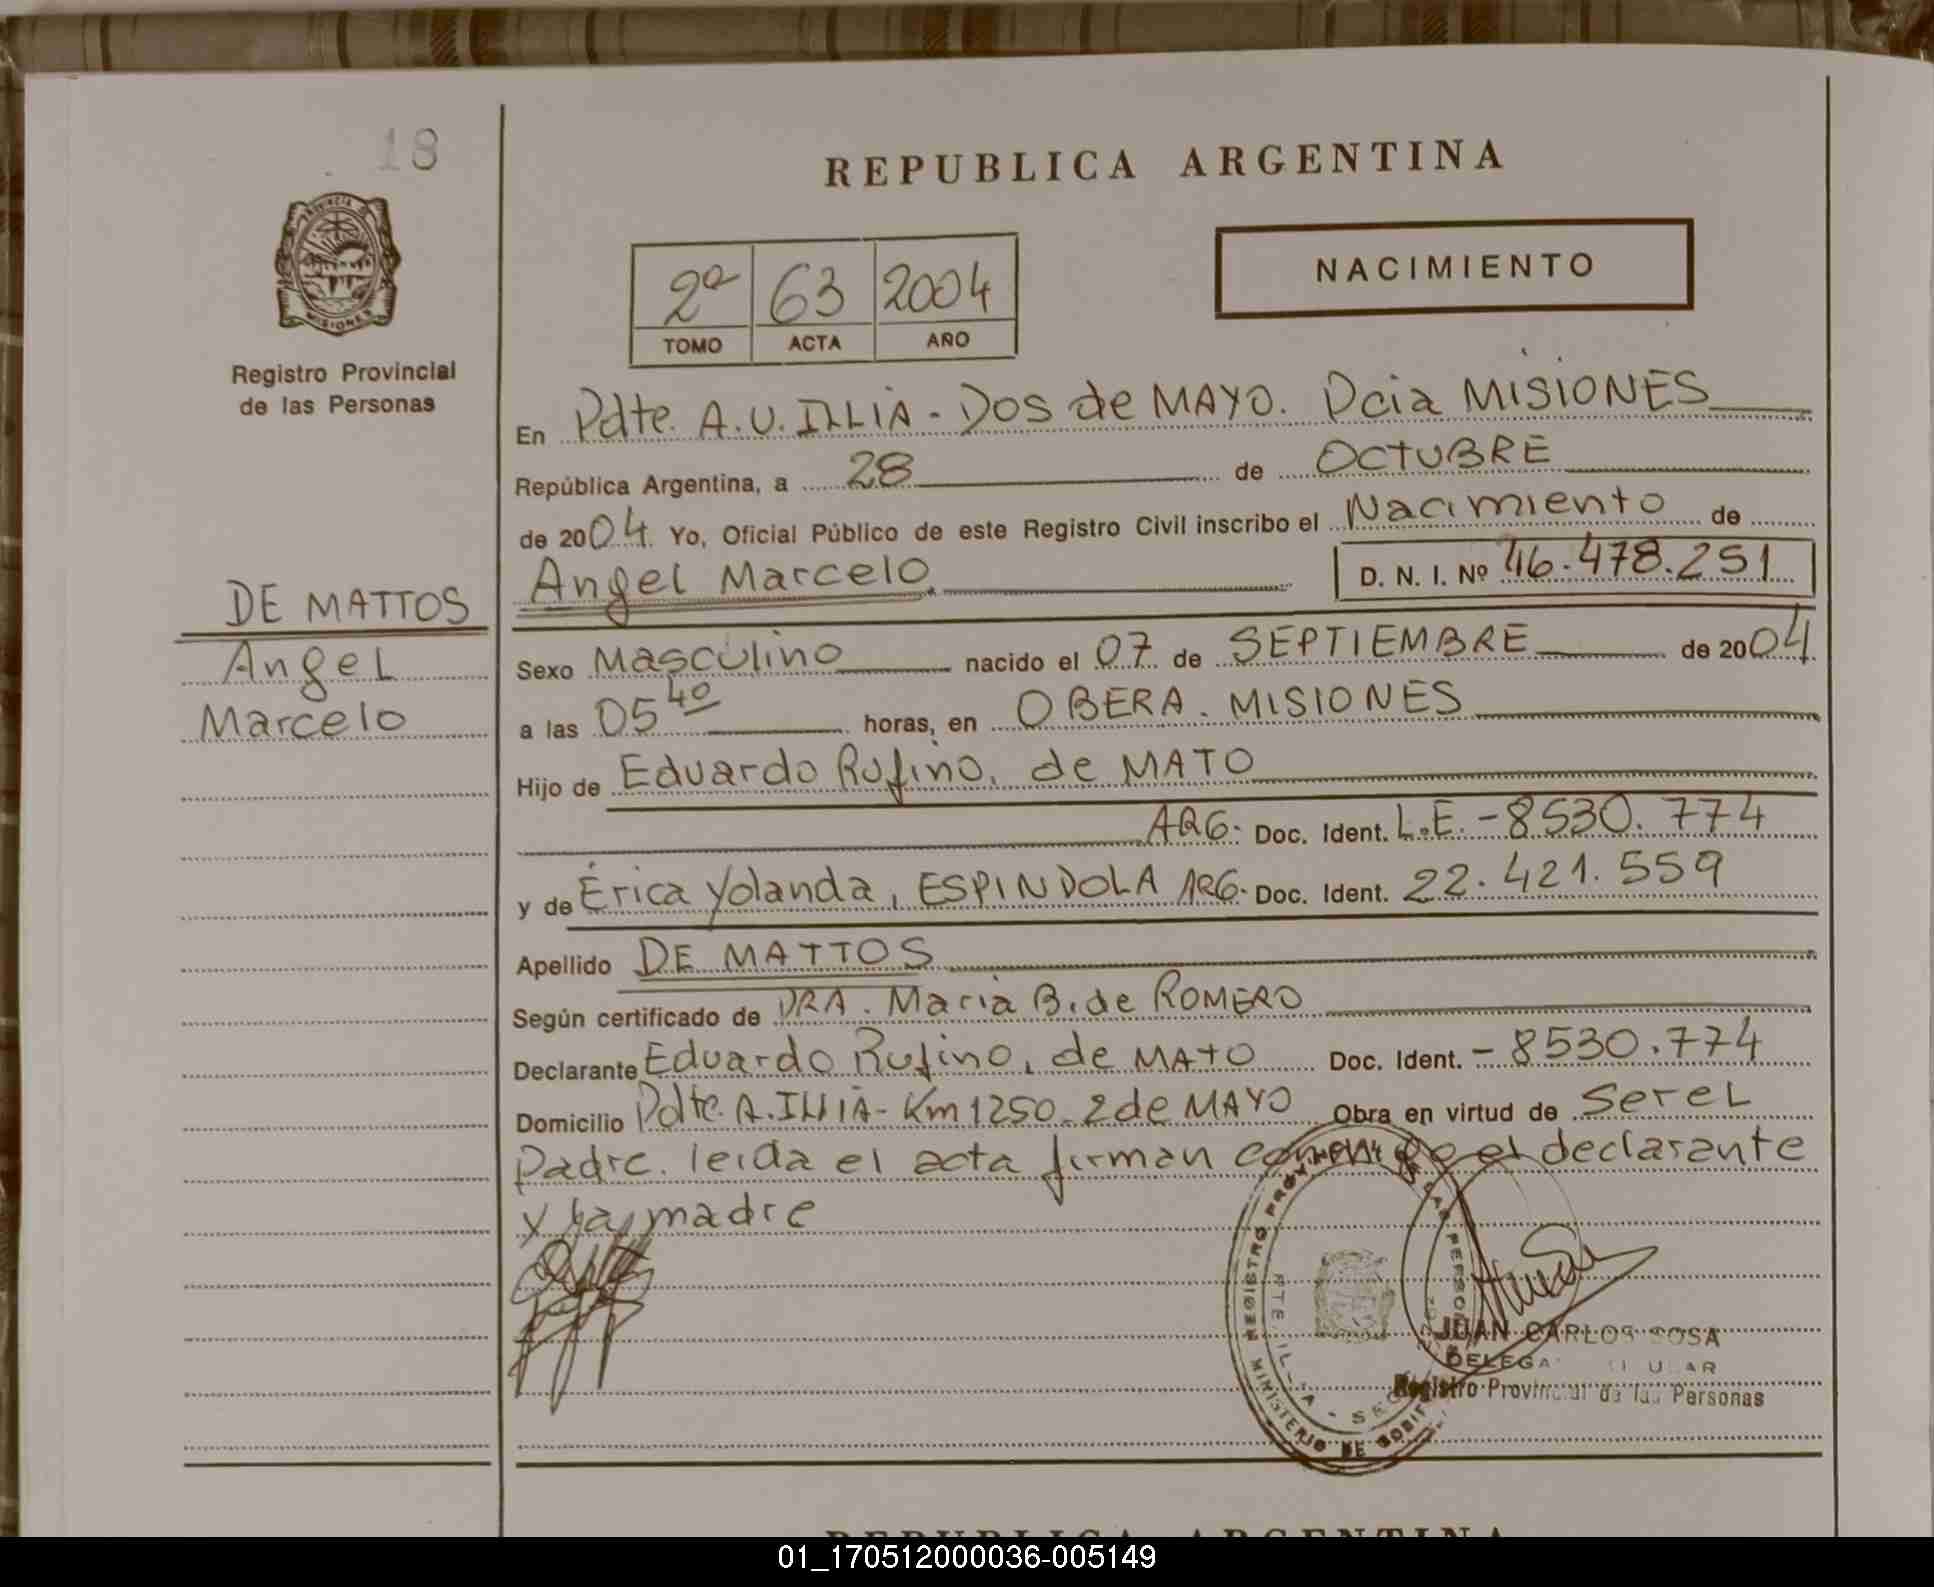 18
REPUBLICA ARGENTINA
PROVINCIA DE
MISIONES
Registro Provincial
de las Personas
2º 63 2004
TOMO ACTA AÑO
NACIMIENTO
En Pdte. A.U. ILLIA - DOS de MAYO. Pcia MISIONES
República Argentina, a 28 de OCTUBRE
de 2004. Yo, Oficial Público de este Registro Civil inscribo el Nacimiento de
Angel Marcelo. D. N. I. Nº 46.478.251
DE MATTOS
Angel
Marcelo
Sexo Masculino nacido el 07 de SEPTIEMBRE de 2004
a las 05 40 horas, en OBERA. MISIONES
Hijo de Eduardo Rufino, de MATO
ARG. Doc. Ident. L.E. - 8530.774
y de Érica Yolanda, ESPINDOLA ARG. Doc. Ident. 22.421.559
Apellido DE MATTOS
Según certificado de DRA. Maria B. de ROMERO
Declarante Eduardo Rufino, de MATO Doc. Ident. - 8530.774
Domicilio Pdte. A. Illia - Km 1250 - 2 de MAYO Obra en virtud de Ser el
Padre. leida el acta firman conmigo el declarante
y la madre
JUAN CARLOS SOSA
Registro Provincial de las Personas
REGISTRO
MINISTERIO DE
REPUBLICA ARGENTINA
01_170512000036-005149